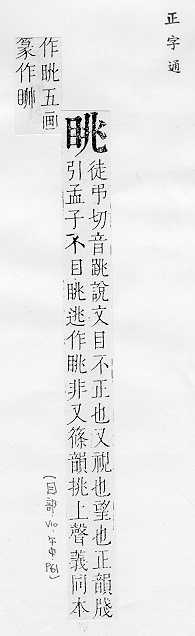 正字通
眺
徒弔切音跳說文目不正也又視也望也正韻牋
引孟子不目眺逃作眺非又篠韻挑上聲義同本
作眺五画
篆作
(目部 V10 午中 P61)